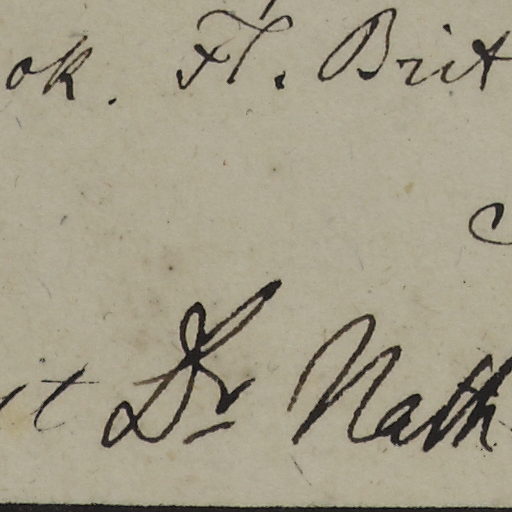 ok. Fl. Brit
Dr Nath